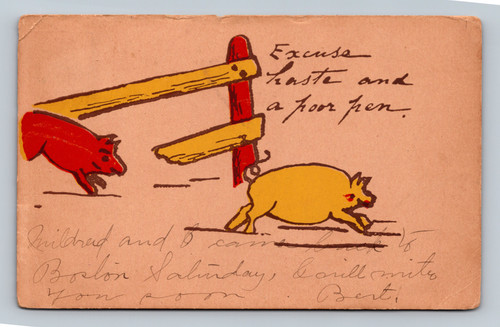 Excuse
haste and
a poor pen.
Mildred and I came back to
Boston Saturday, will write
you soon. Bert.